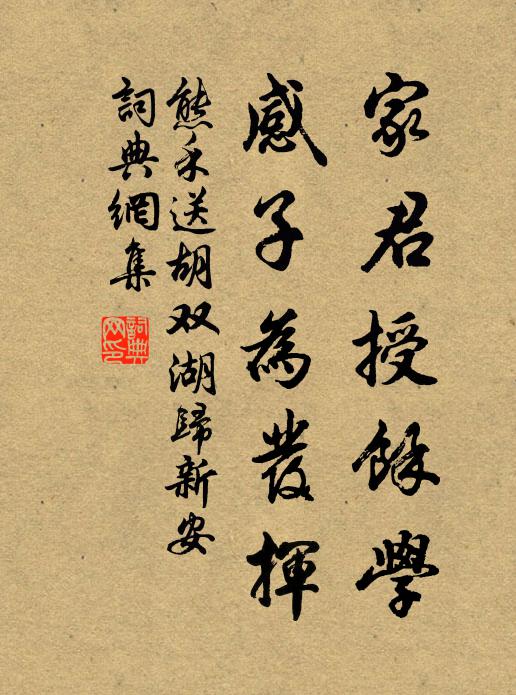 家君授餘學
感子為發揮
熊禾送胡双湖歸新安
詞典網集
詞典
网印